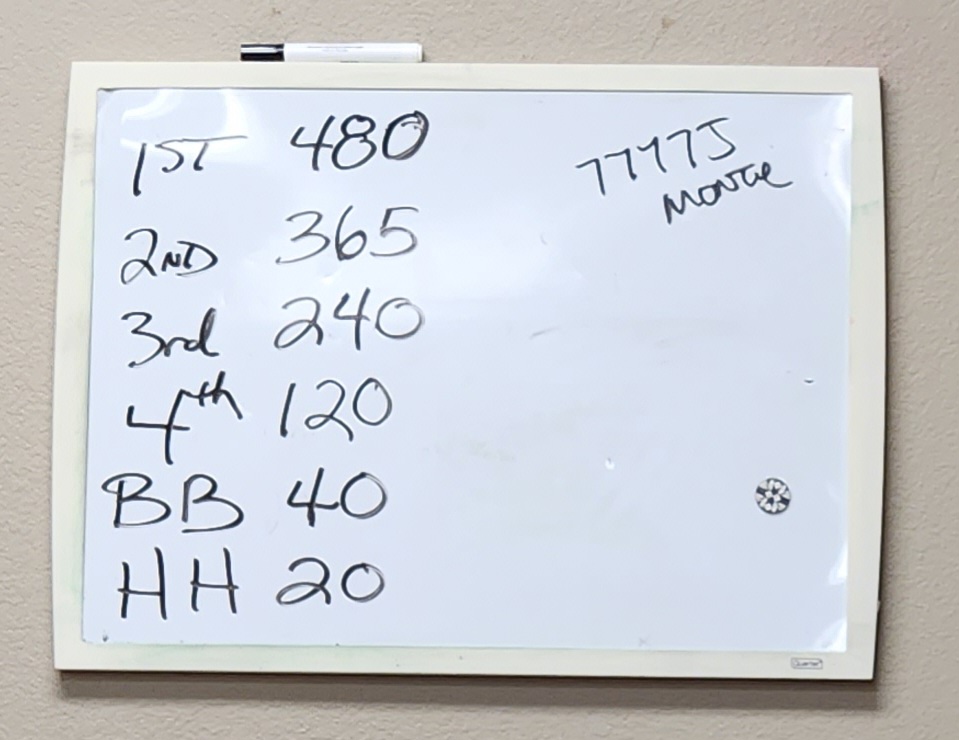 1ST 480
2ND 365
3rd 240
4th 120
BB 40
HH 20
7777J
Quartet